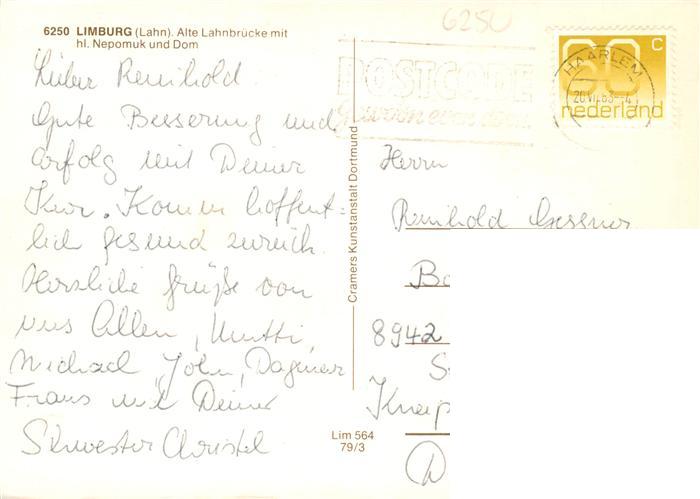 6250 LIMBURG (Lahn). Alte Lahnbrücke mit
hl. Nepomuk und Dom
6250
Lieber Reinhold.
Gute Besserung und
Erfolg mit Deiner
Kur. Komm hoffent=
lich gesund zurück.
Herzliche Grüße von
uns Allen, Mutti,
Michael, John, Dagmar
Frans und Deine
Schwester Christel
Cramers Kunstanstalt Dortmund
Lim 564
79/3
POSTCODE
Gewoon even doen
HAARLEM
60 c
nederland
Herrn
Reinhold Gessner
Ba
8942
Kneip